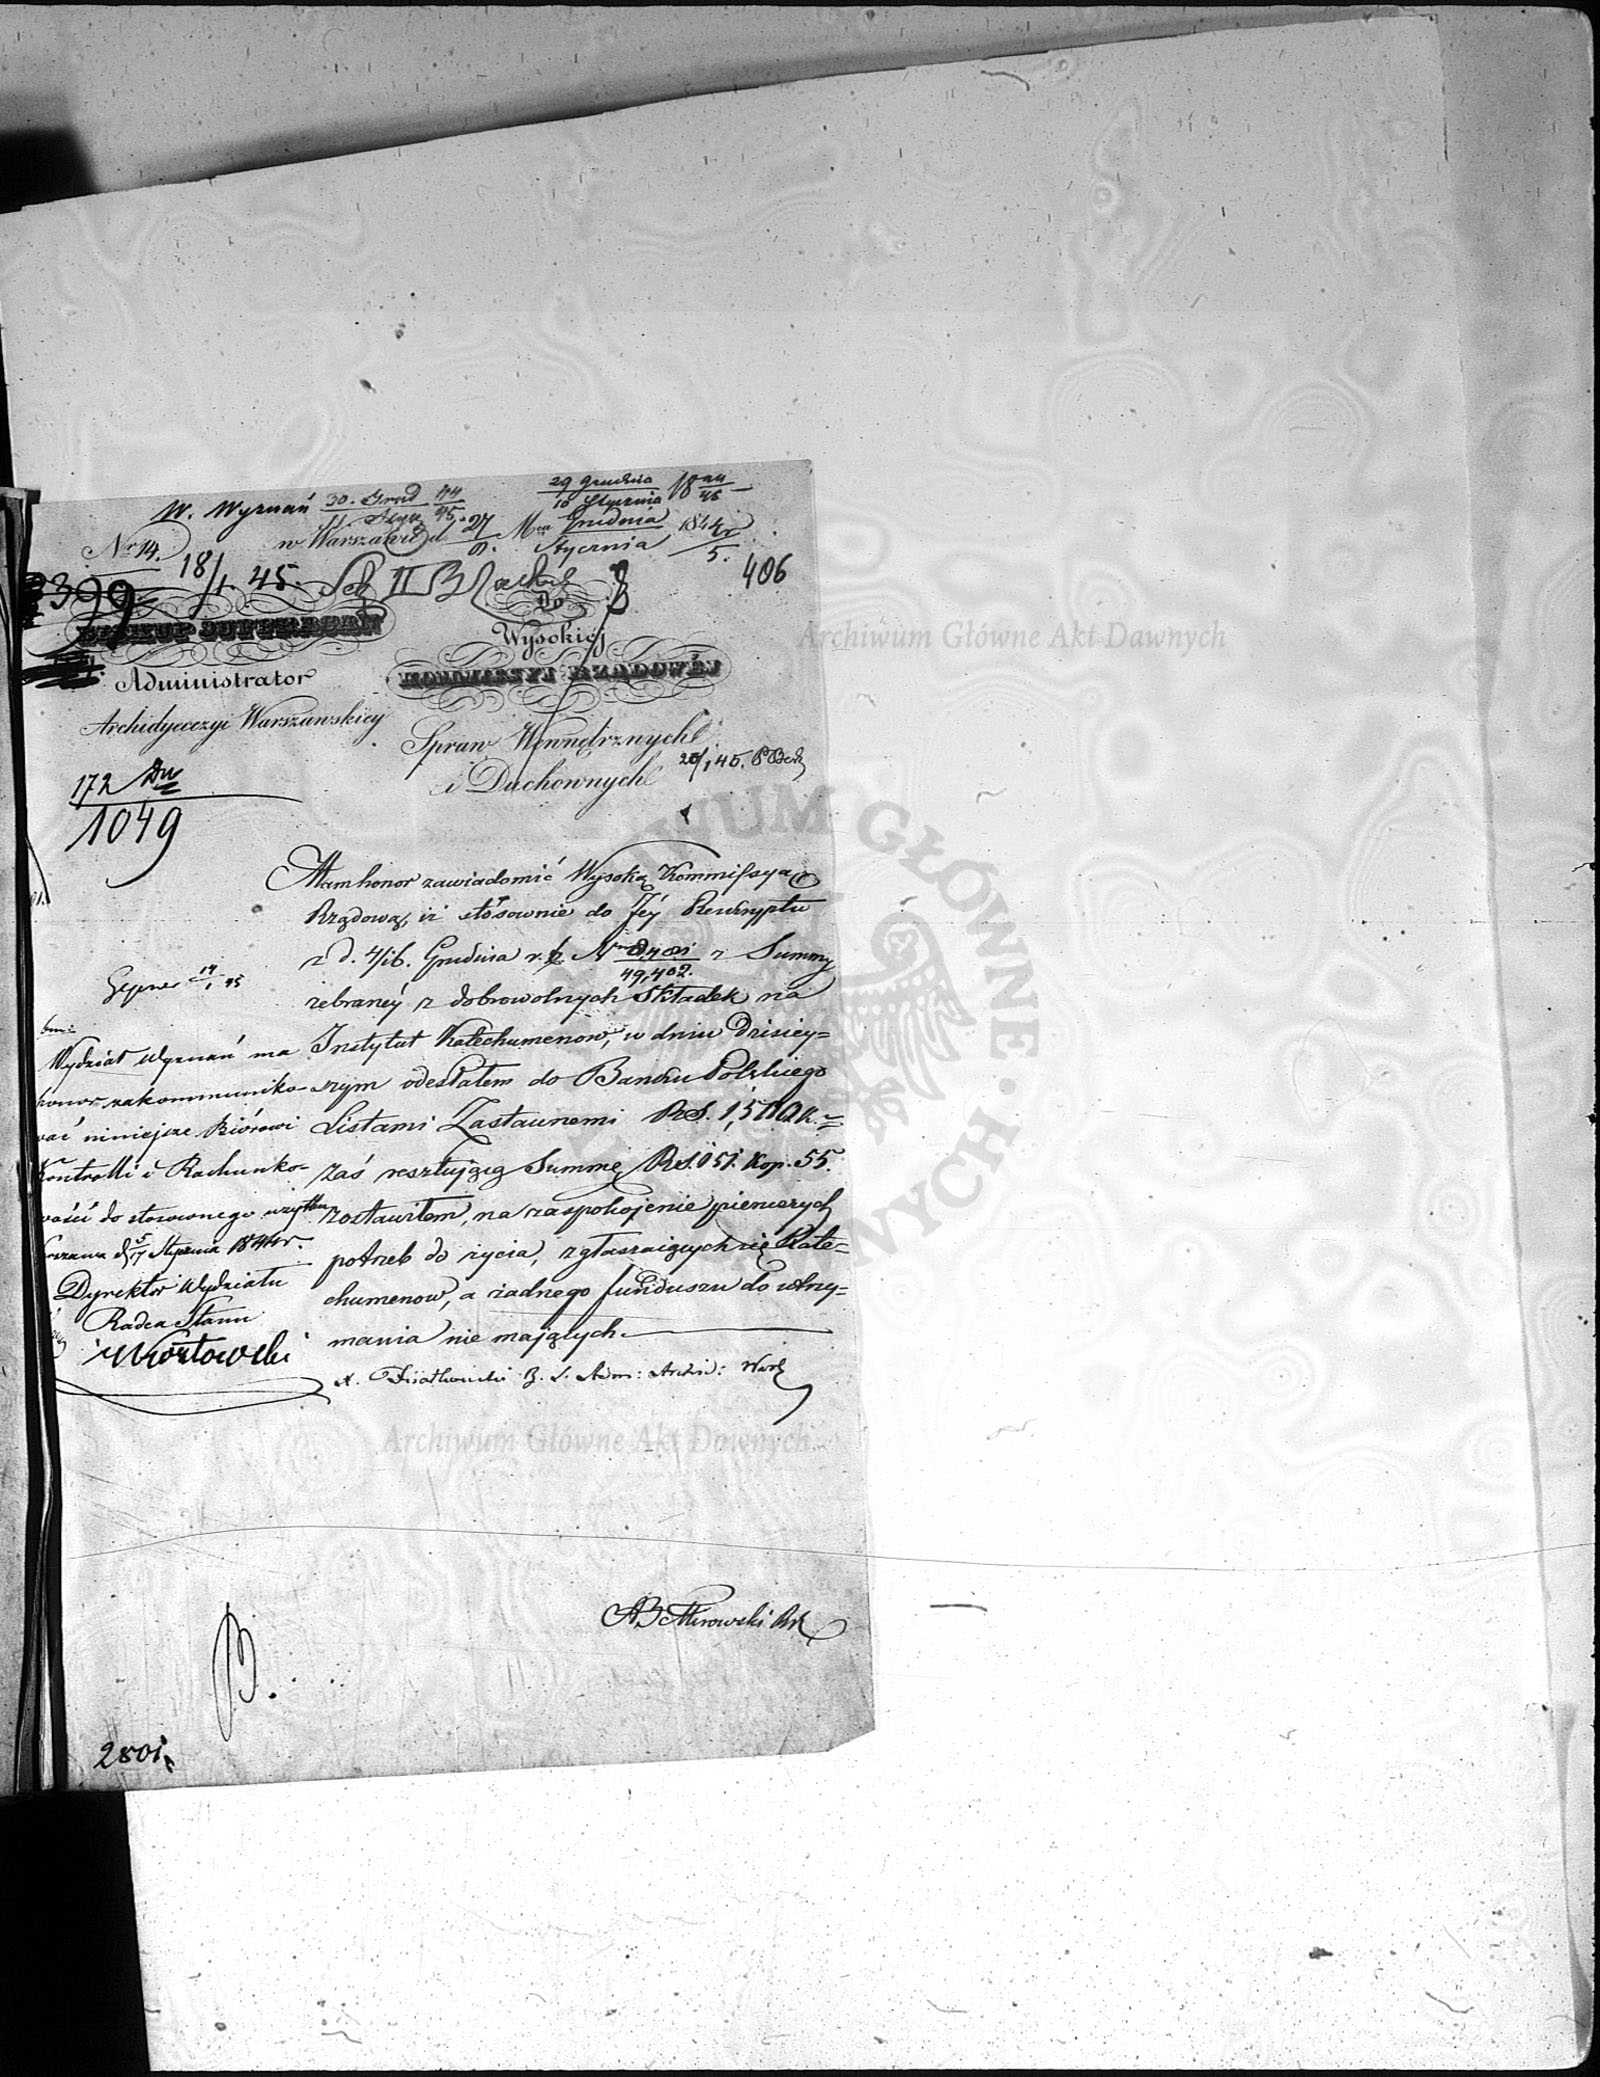 W. Wyznań 30. Grud 44
11 Stycz 45.
29 Grudnia 18 44
10 Stycznia 45
Nr 14.
w Warszawie d 27 Mca Grudnia 1844 r
Stycznia 5.
399 18/1 45. II
406
BISKUP SUFFRAGAN
Administrator
Archidyecezyi Warszawskiej
Do
Wysokiej
KOMMISSYI RZĄDOWÉJ
Spraw Wewnętrznych
i Duchownych
20/1 45.
172
1049
Mam honor zawiadomić Wysoką Kommissyą
Rządową, iż stósownie do Jéy Reskryptu
z d. 4/16. Grudnia r. z. Nro
49,402. z Summy
zebranéy z dobrowolnych Składek na
Instytut Katechumenow, w dniu dzisiey=
szym odesłałem do Banku Polskiego
Listami Zastawnemi RS. 1,500 k. =
zaś resztującą Summę RS. 051. Kop. 55.
zostawiłem, na zaspokojenie pierwszych
potrzeb do życia, zgłaszaiących się Kate=
chumenow, a żadnego funduszu do utrzy=
mania nie mających.
X. Fijałkowski B. S. Adm: Archid: Wars
14
1 45
Wydział Wyznań ma
honor zakommuniko-
wać niniejsze Biórowi
Kontrolli i Rachunko-
wości do stosownego użytku
d 5/17 Stycznia 1844 r.
Dyrektor Wydziału
Radca Stanu
B.
2801
Archiwum Główne Akt Dawnych
ARCHIWUM GŁÓWNE AKT DAWNYCH
Archiwum Główne Akt Dawnych